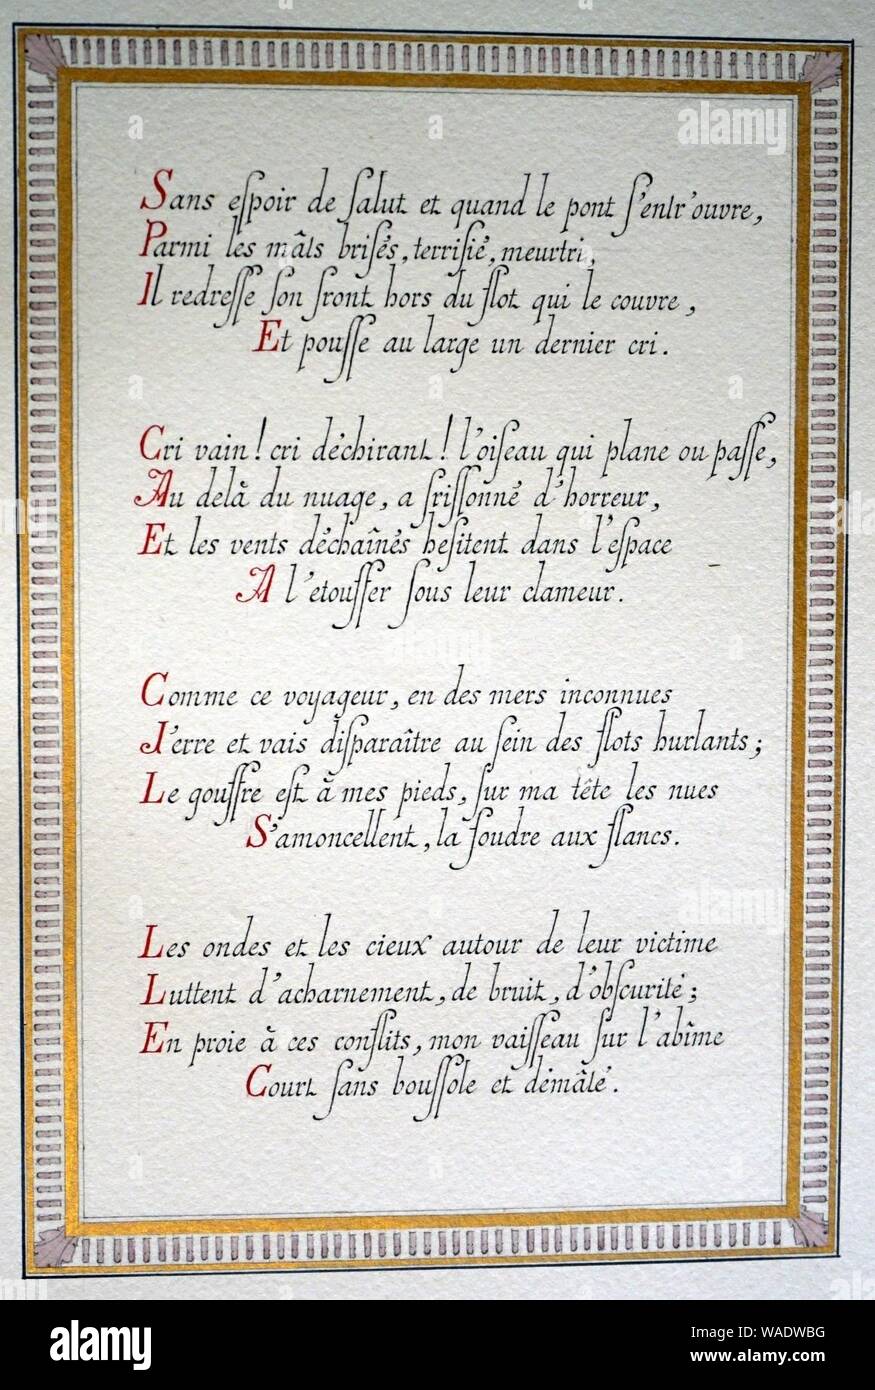 Sans espoir de salut et quand le pont s'entr'ouvre,
Parmi les mâts brisés, terrifié, meurtri,
Il redresse son front hors du flot qui le couvre,
Et pousse au large un dernier cri.
Cri vain! cri déchirant! l'oiseau qui plane ou passe,
Au delà du nuage, a frissonné d'horreur,
Et les vents déchaînés hesitent dans l'espace
A l'etouffer sous leur clameur.
Comme ce voyageur, en des mers inconnues
J'erre et vais disparaître au sein des flots hurlants;
Le gouffre est à mes pieds, sur ma tête les nues
S'amoncellent, la foudre aux flancs.
Les ondes et les cieux autour de leur victime
Luttent d'acharnement, de bruit, d'obscurité;
En proie à ces conflits, mon vaisseau sur l'abîme
Court sans boussole et démâté.
alamy
Image ID: WADWBG
www.alamy.com